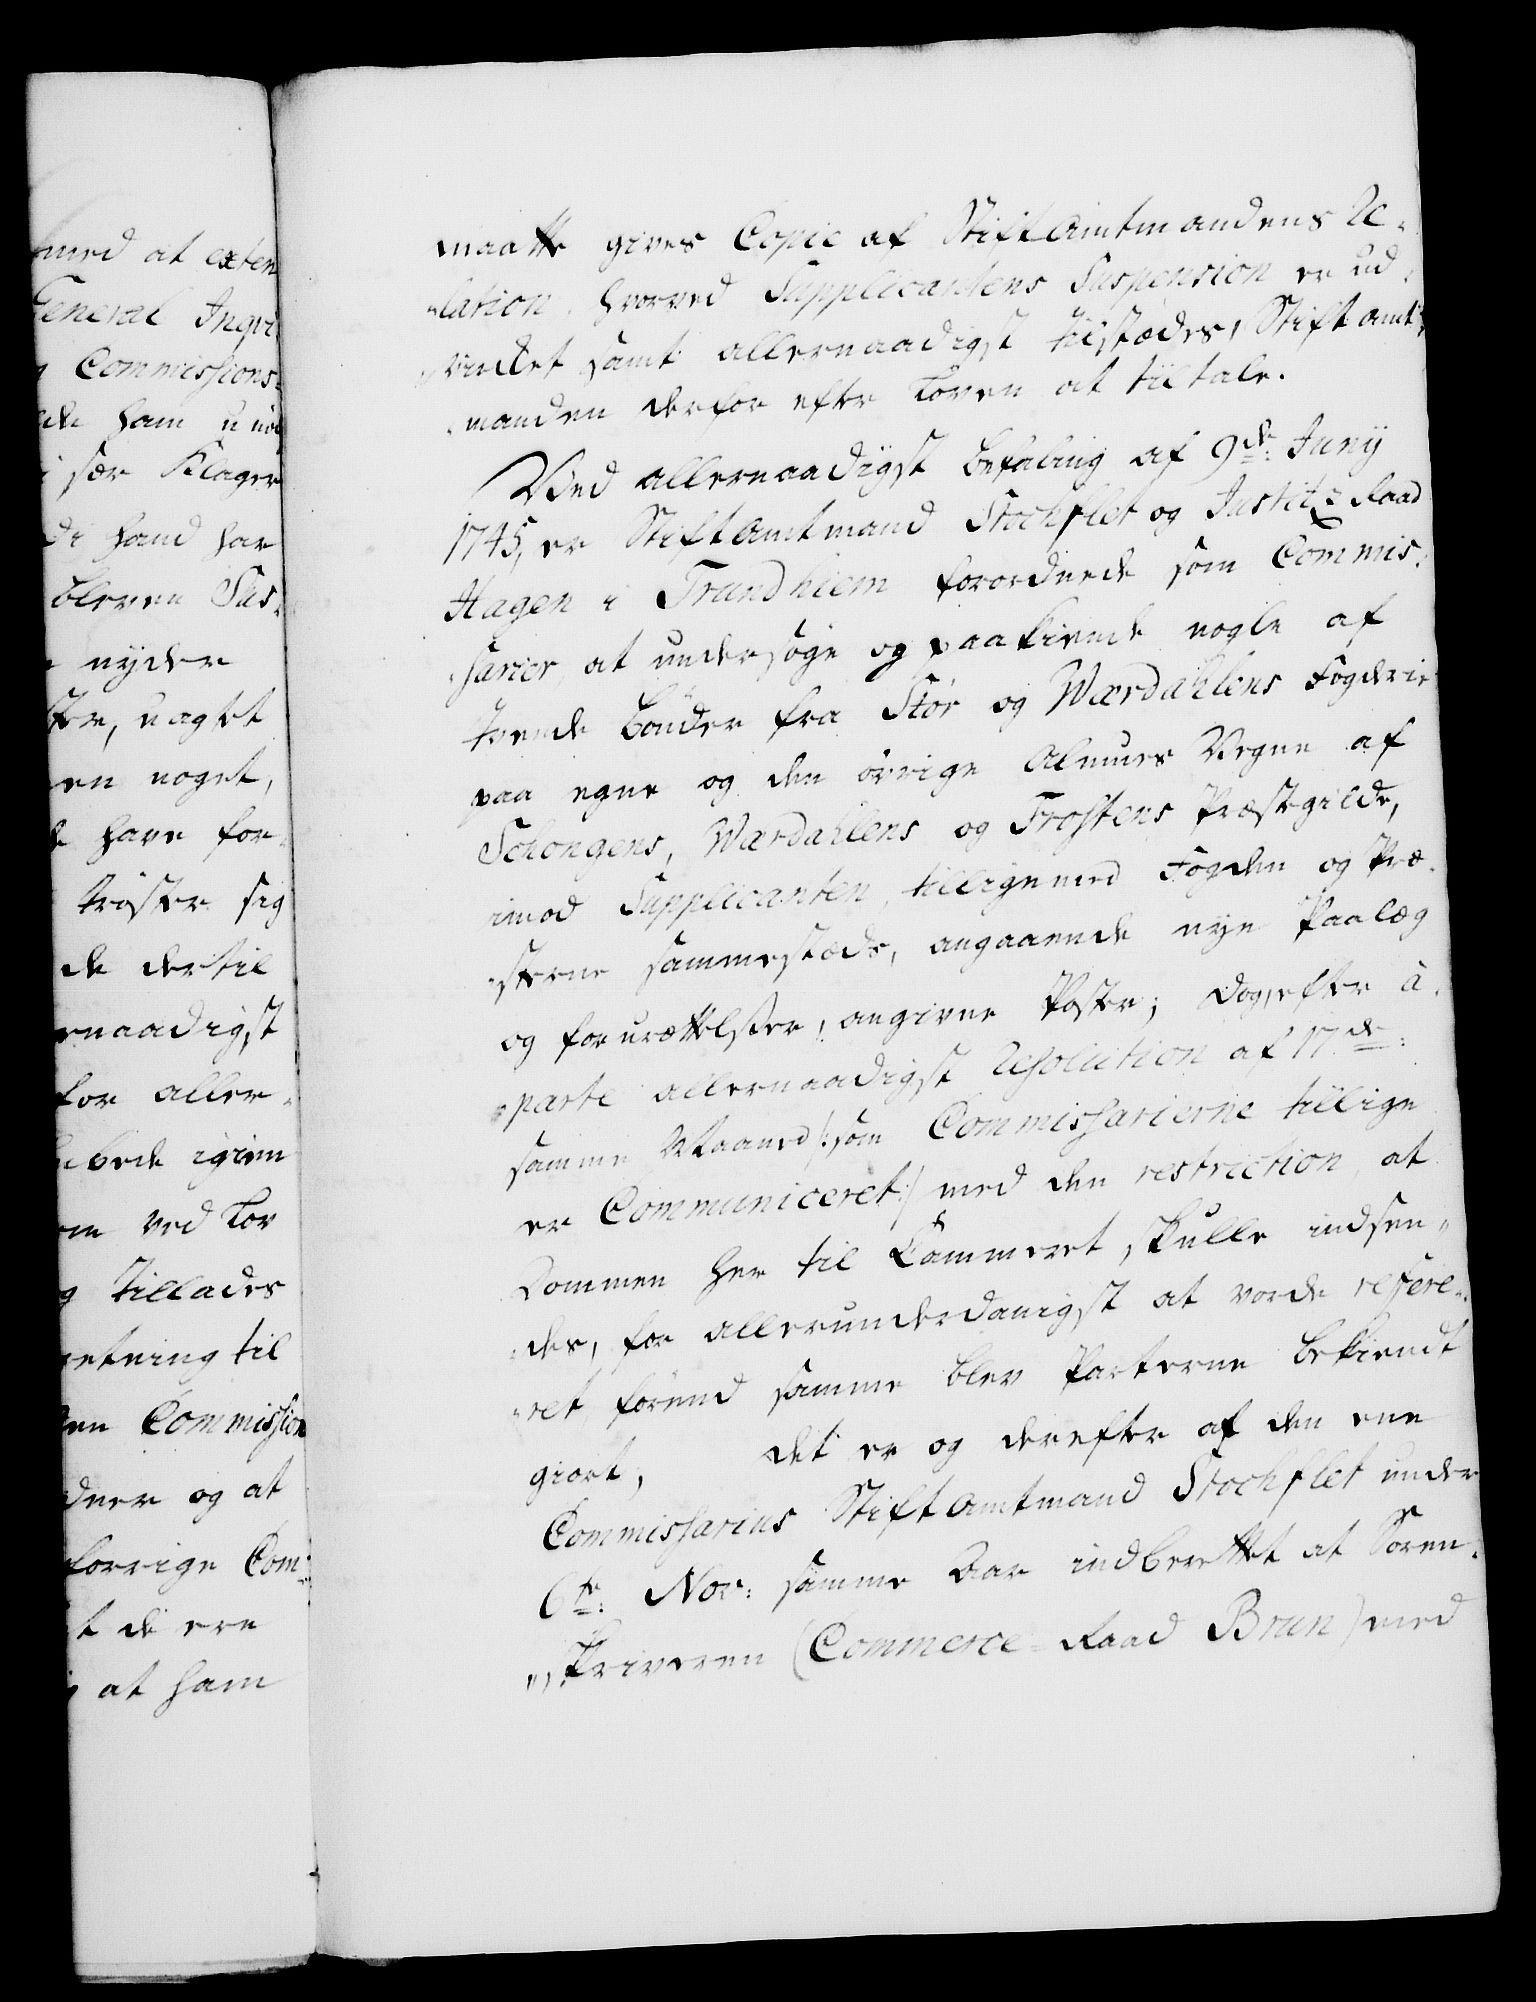 med at exten
General Inqvi
Commissions-
de ham u nød
i sær Klager
di hand har
bleven Sus-
nyder
ter, uagtet
en noget,
have for-
trøster sig
de dertil
rnaadigst
for aller-
bede igien
m ved Lov
g tillades
retning til
en Commission
dner og at
forrige Com-
t de ere
at ham
maatte gives Copie af Stiftamtmandens Re-
lation, hvorved Supplicantens Suspension er ud-
virket samt allernaadigst tilstædes, Stiftamt-
manden derfor efter Loven at tiltale.
Ved allernaadigst befaling af 9de: Juny
1745, er Stiftamtmand Stockflet og Justitz Raad
Hagen i Trundhiem forordnede som Commis-
sarier, at undersøge og paakiende nogle af
tvende bønder fra Stør og Wærdahlens Fogderie
paa egne og den øvrige Almues Vegne af
Schongens, Wærdahlens og Frostens Præstegilde,
imod Supplicanten, tilligemed Fogden og Præ-
sterne sammestæds, angaaende nye Paalæg
og forurættelser, angivne Poster; dog, efter a
parte allernaadigst Resolution af 17de:
samme Maaned /: som Commissarierne tillige
er Communiceret :/ med den restriction, at
Dommen her til Kammeret skulle indsen-
des, for allerunderdanigst at vorde refere-
ret førend samme blev Parterne bekiendt
giort; det er og derefter af den ene
Commissarius Stiftamtmand Stockflet under
6te: Nov: samme Aar indberettet at Soren-
skriveren (Commerce-Raad Brun) med